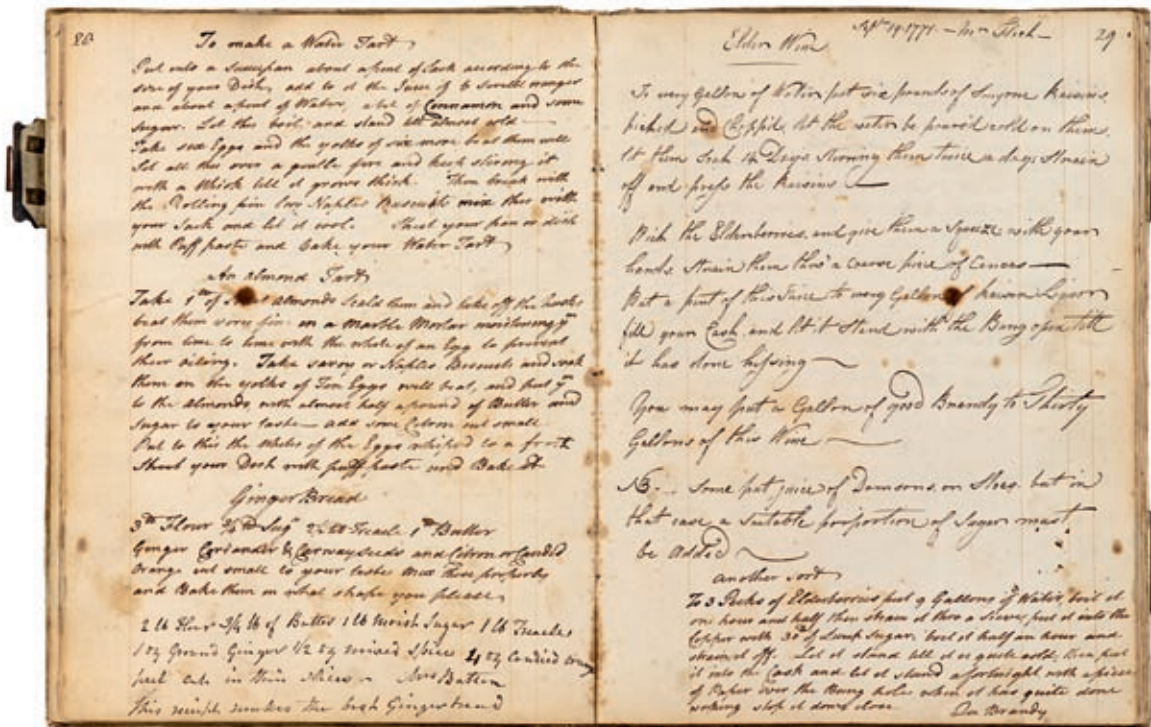 28
To make a Water Tart
Put into a saucepan about a pint of Sack according to the
size of your Dish, add to it the Juice of 6 Seville
and about a pint of Water, a bit of Cinnamon and some
Sugar. Let this boil and stand till almost cold
Take six Eggs and the yolks of six more beat them well
Set all this over a gentle fire and keep stirring it
with a Whisk till it grows thick. Then break with
the Rolling pin two Naples Biscuits mix this with
your Sack and let it cool. Sheet your pan or dish
with Puff paste and bake your Water Tart
An Almond Tart
Take 1 lb of Almonds Scald them and take off the husks
beat them very fine in a Marble Mortar moistening ym
from time to time with the white of an Egg to prevent
their oiling. Take savoy or Naples Biscuits and soak
them in the yolks of Ten Eggs well beat, and put ym
to the Almonds, with almost half a pound of Butter and
Sugar to your taste add some Citron cut small
Put to this the whites of the Eggs whiped to a froth
Sheet your Dish with puff paste and Bake it
Ginger Bread
3 lb Flour Treacle 1 lb Butter
Ginger Coriander & Carway Seeds and Citron or Candied
Orange cut small to your taste mix these properly
and Bake them in what shape you please
2 lb Flour 3/4 lb of Butter 1 lb Moist Sugar 1 lb Treacle
1 oz Ground Ginger 1/2 oz mixed Spice 4 oz Candied orange
peel cut in thin slices Mrs Batten
This receipt makes the best Gingerbread
29
1771
Elder Wine
To every Gallon of Water put six pounds of Smyrna Raisins
picked and Chopp'd, let the water be pour'd cold on them.
let them Steep 14 Days stirring them twice a day; strain
off and press the Raisins
Pick the Elderberries, and give them a Squeeze with your
hands Strain them thro' a coarse piece of Canvas
Put a pint of this Juice to every Gallon of Raisin Liquor
fill your Cask, and let it Stand with the Bung open till
it has done hissing
You may put a Gallon of good Brandy to Thirty
Gallons of this Wine
NB. Some put juice of Damsons, or Sloes. but in
that case a Suitable proportion of Sugar must
be added
another sort
To 3 Pecks of Elderberries put 9 Gallons of Water, boil it
one hour and half then strain it thro a Sieve, put it into the
Copper with 30 lb of Lump Sugar. boil it half an hour and
strain it off. Let it stand till it is quite cold, then put
it into the Cask and let it stand a fortnight with a piece
of Paper over the Bung hole when it has quite done
working stop it down close
Brandy